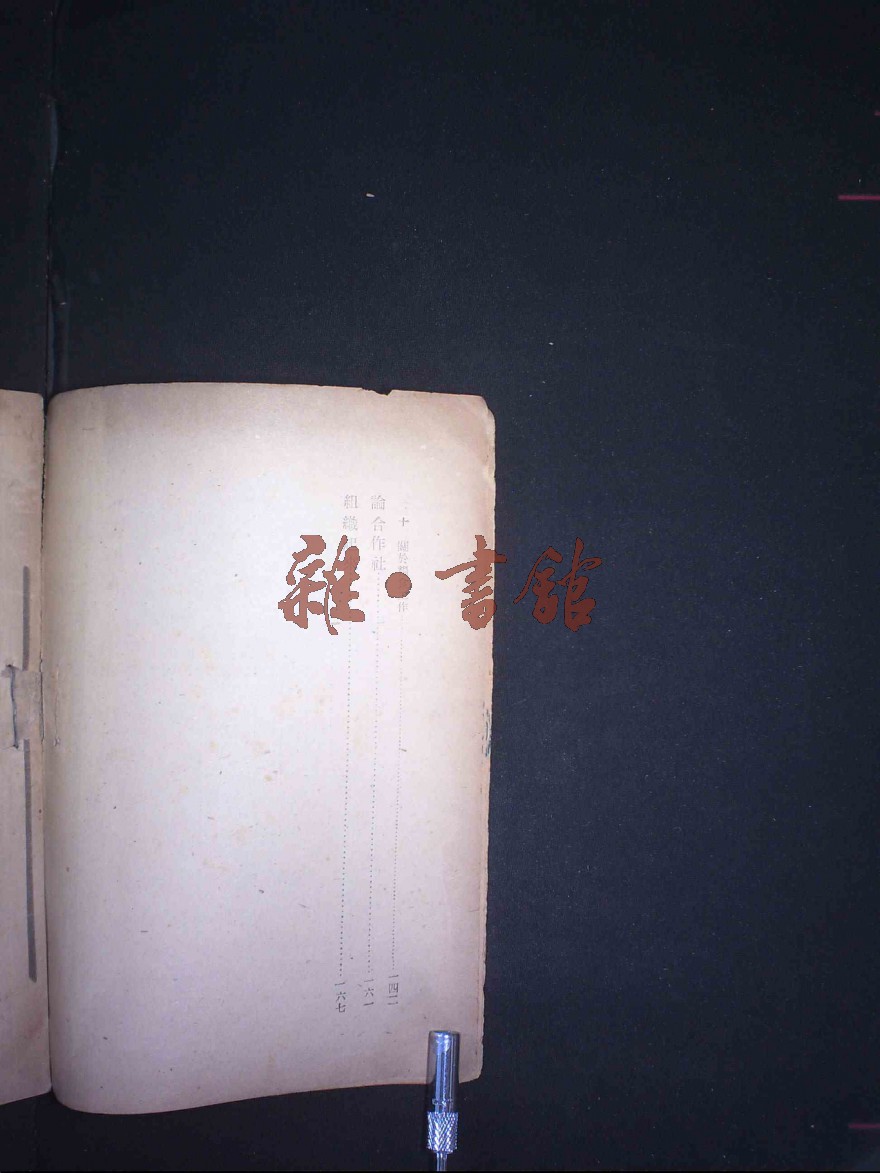 十 關於 作……一四二
論合作社……一六一
組織……一六七
雜·書館